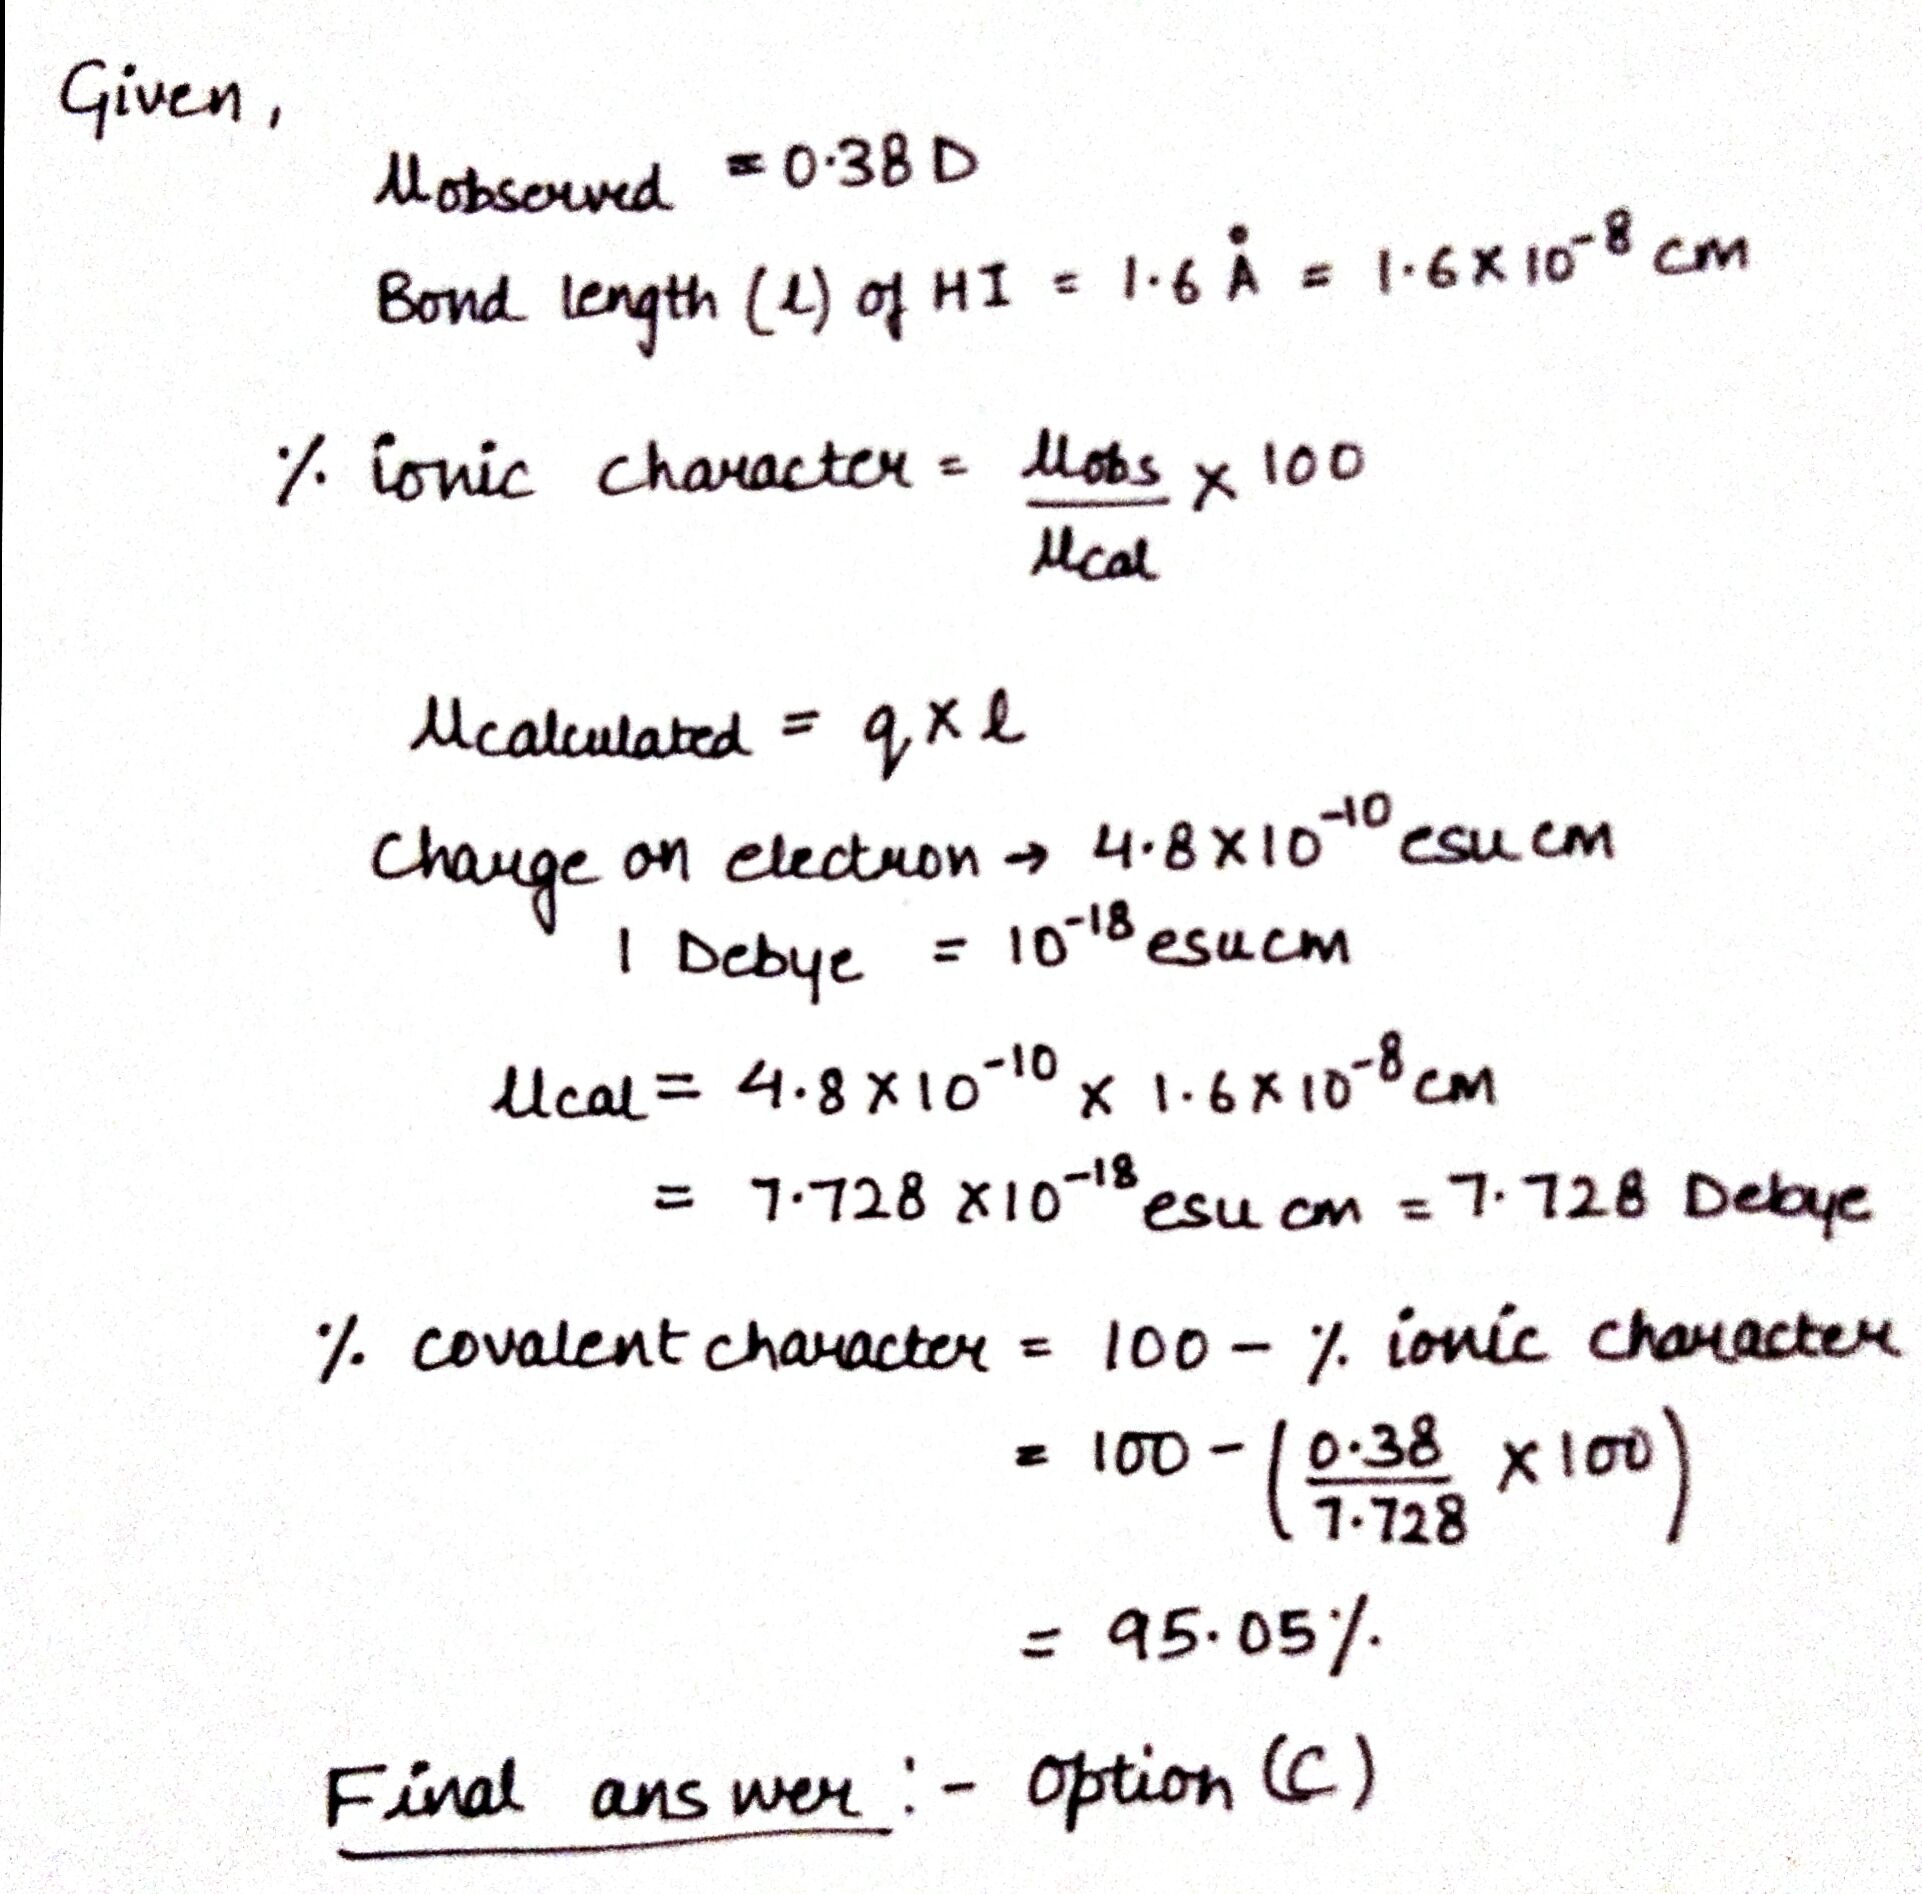 Given,
μobserved = 0.38 D
Bond length (l) of HI = 1.6 Å = 1.6 × 10⁻⁸ cm
% ionic character = μobs/μcal × 100
μcalculated = q × l
Charge on electron → 4.8 × 10⁻¹⁰ esu cm
1 Debye = 10⁻¹⁸ esu cm
μcal = 4.8 × 10⁻¹⁰ × 1.6 × 10⁻⁸ cm
= 7.728 × 10⁻¹⁸ esu cm = 7.728 Debye
% covalent character = 100 – % ionic character
= 100 – (0.38/7.728 × 100)
= 95.05%
Final answer :- Option (C)